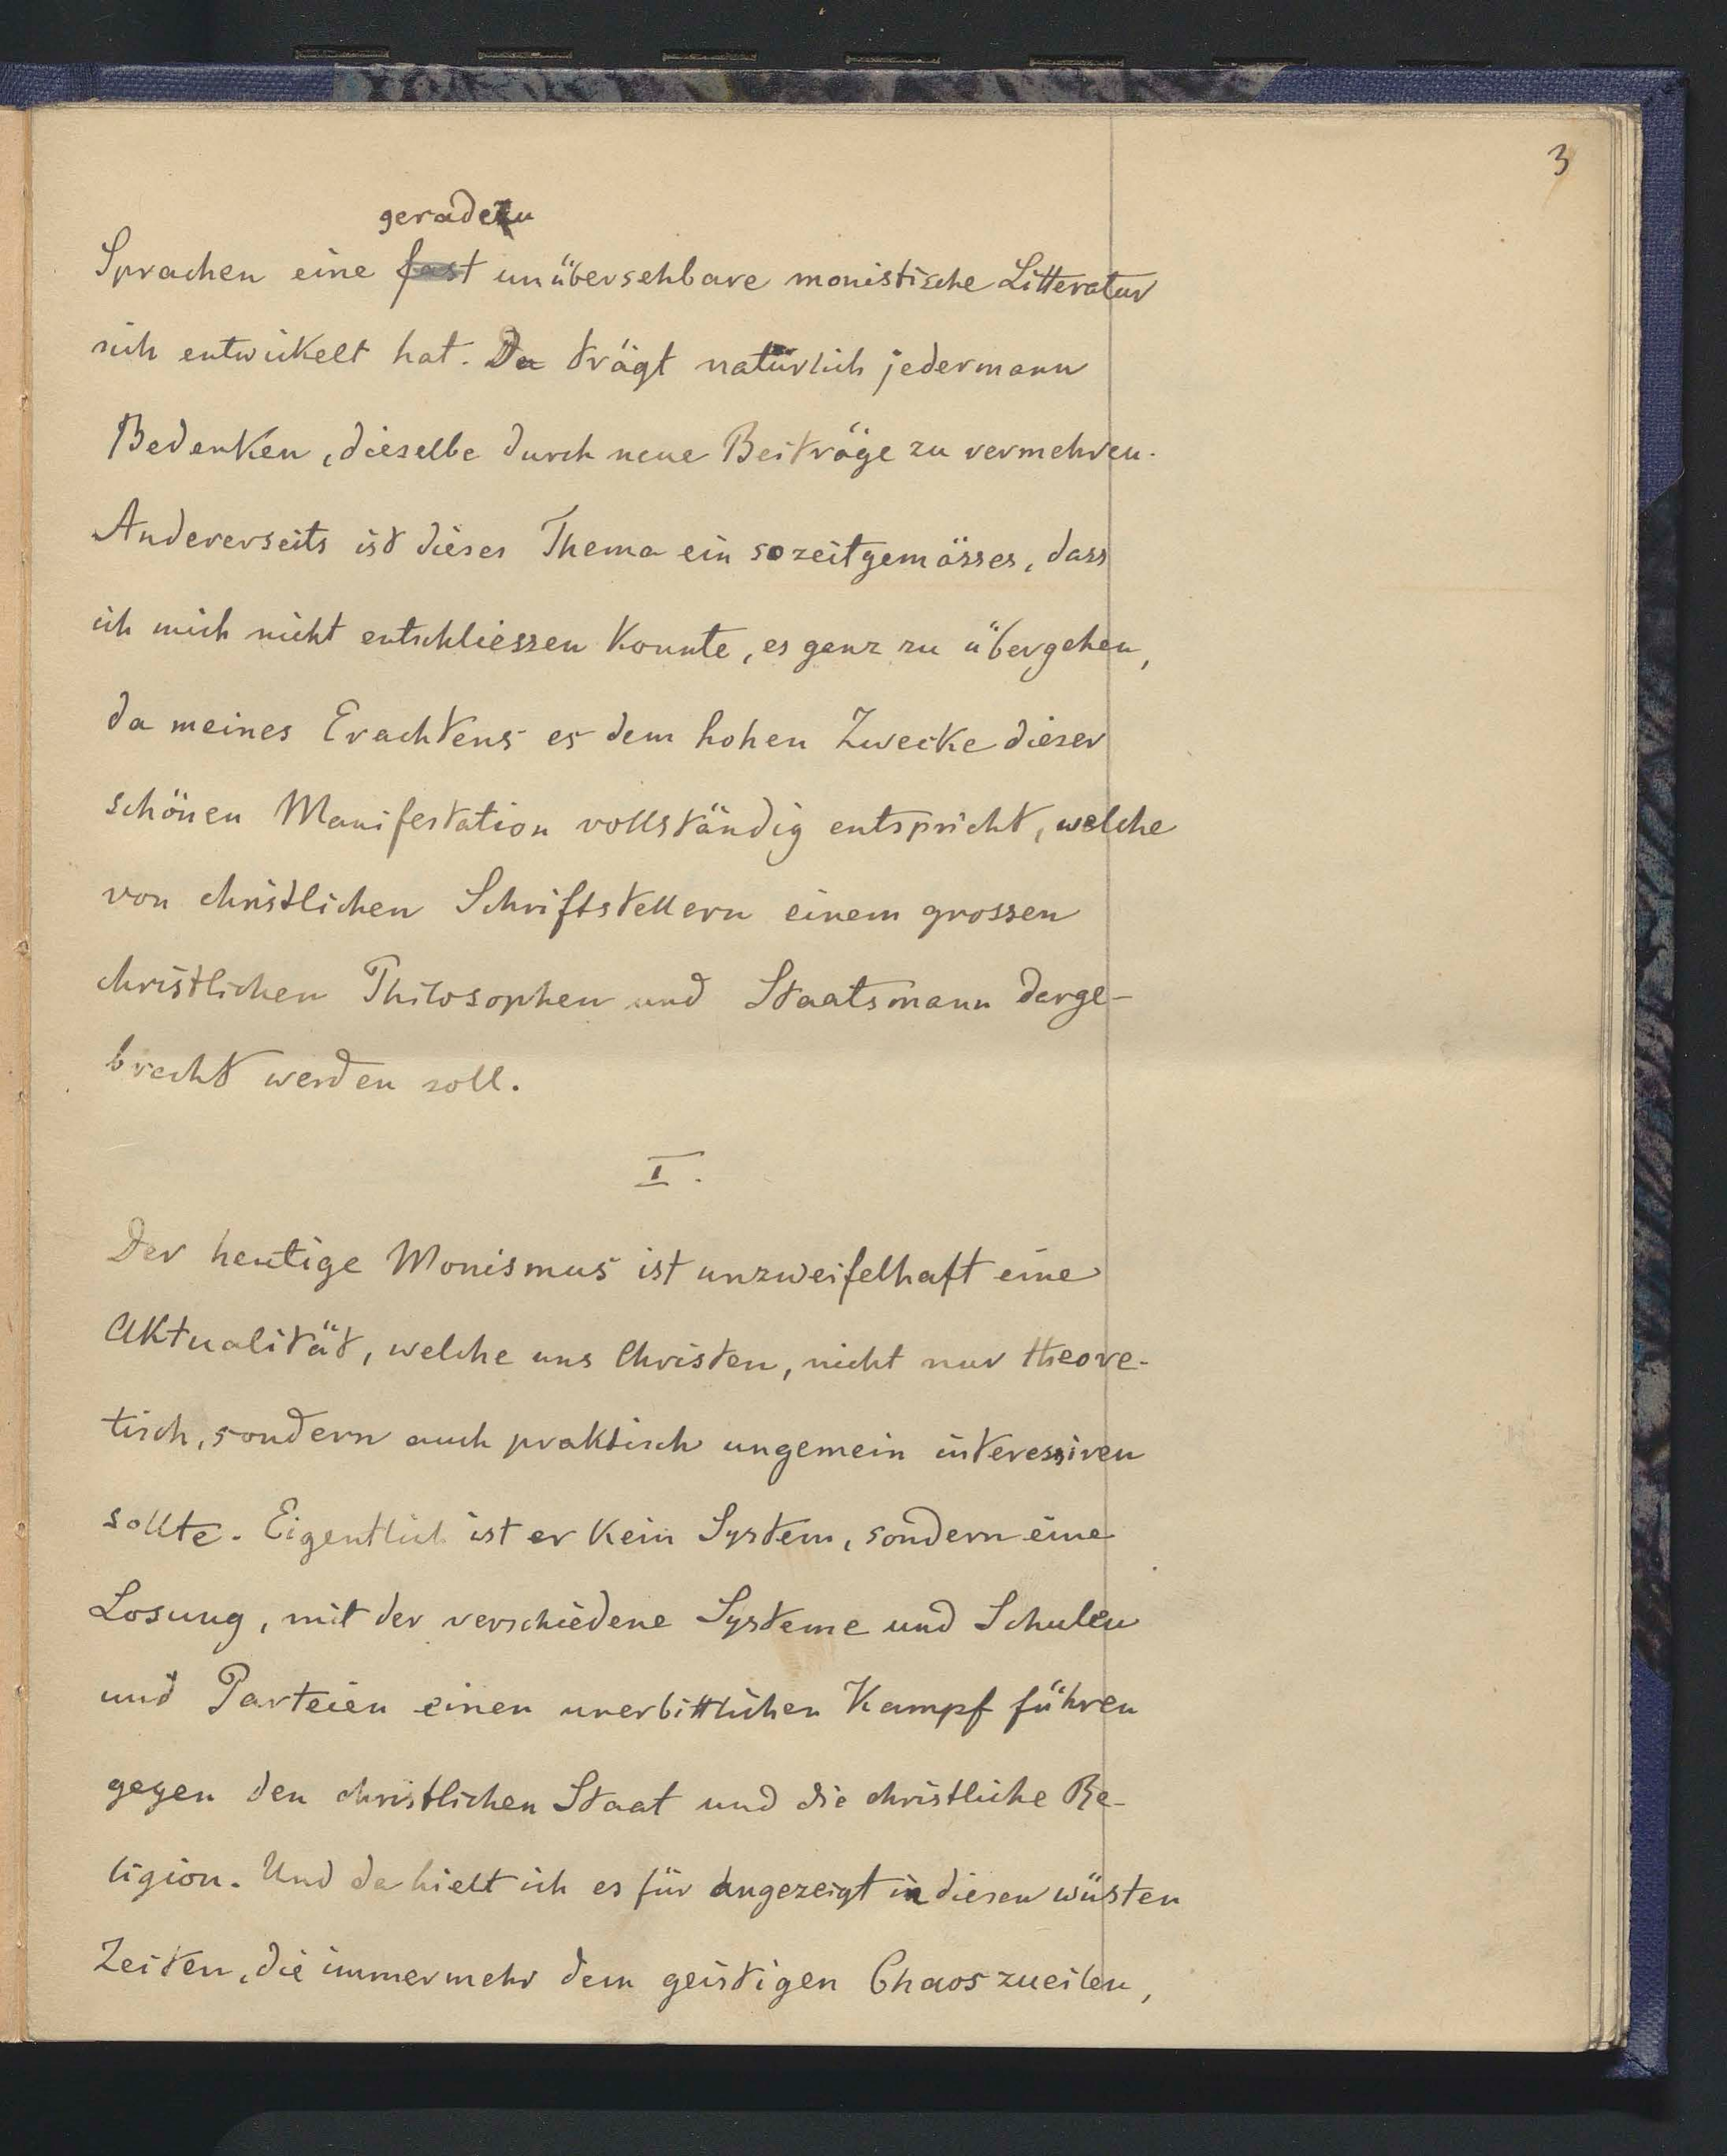 3
geradezu
Sprachen eine fast unübersehbare monistische Litteratur
sich entwikelt hat. Da trägt natürlich jedermann
Bedenken, dieselbe durch neue Beiträge zu vermehren.
Andererseits ist dieses Thema ein so zeitgemässes, dass
ich mich nicht entschliessen konnte, es ganz zu übergehen,
da meines Erachtens es dem hohen Zwecke dieser
schönen Manifestation vollständig entspricht, welche
von christlichen Schriftstellern einem grossen
christlichen Philosophen und Staatsmann darge-
bracht werden soll.
I.
Der heutige Monismus ist unzweifelhaft eine
Aktualität, welche uns Christen, nicht nur theore-
tisch, sondern auch praktisch ungemein interessiren
sollte. Eigentlich ist er kein System, sondern eine
Losung, mit der verschiedene Systeme und Schulen
und Parteien einen unerbittlichen Kampf führen
gegen den christlichen Staat und die christliche Re-
ligion. Und da hielt ich es für angezeigt in diesen wüsten
Zeiten, die immer mehr dem geistigen Chaos zueilen,